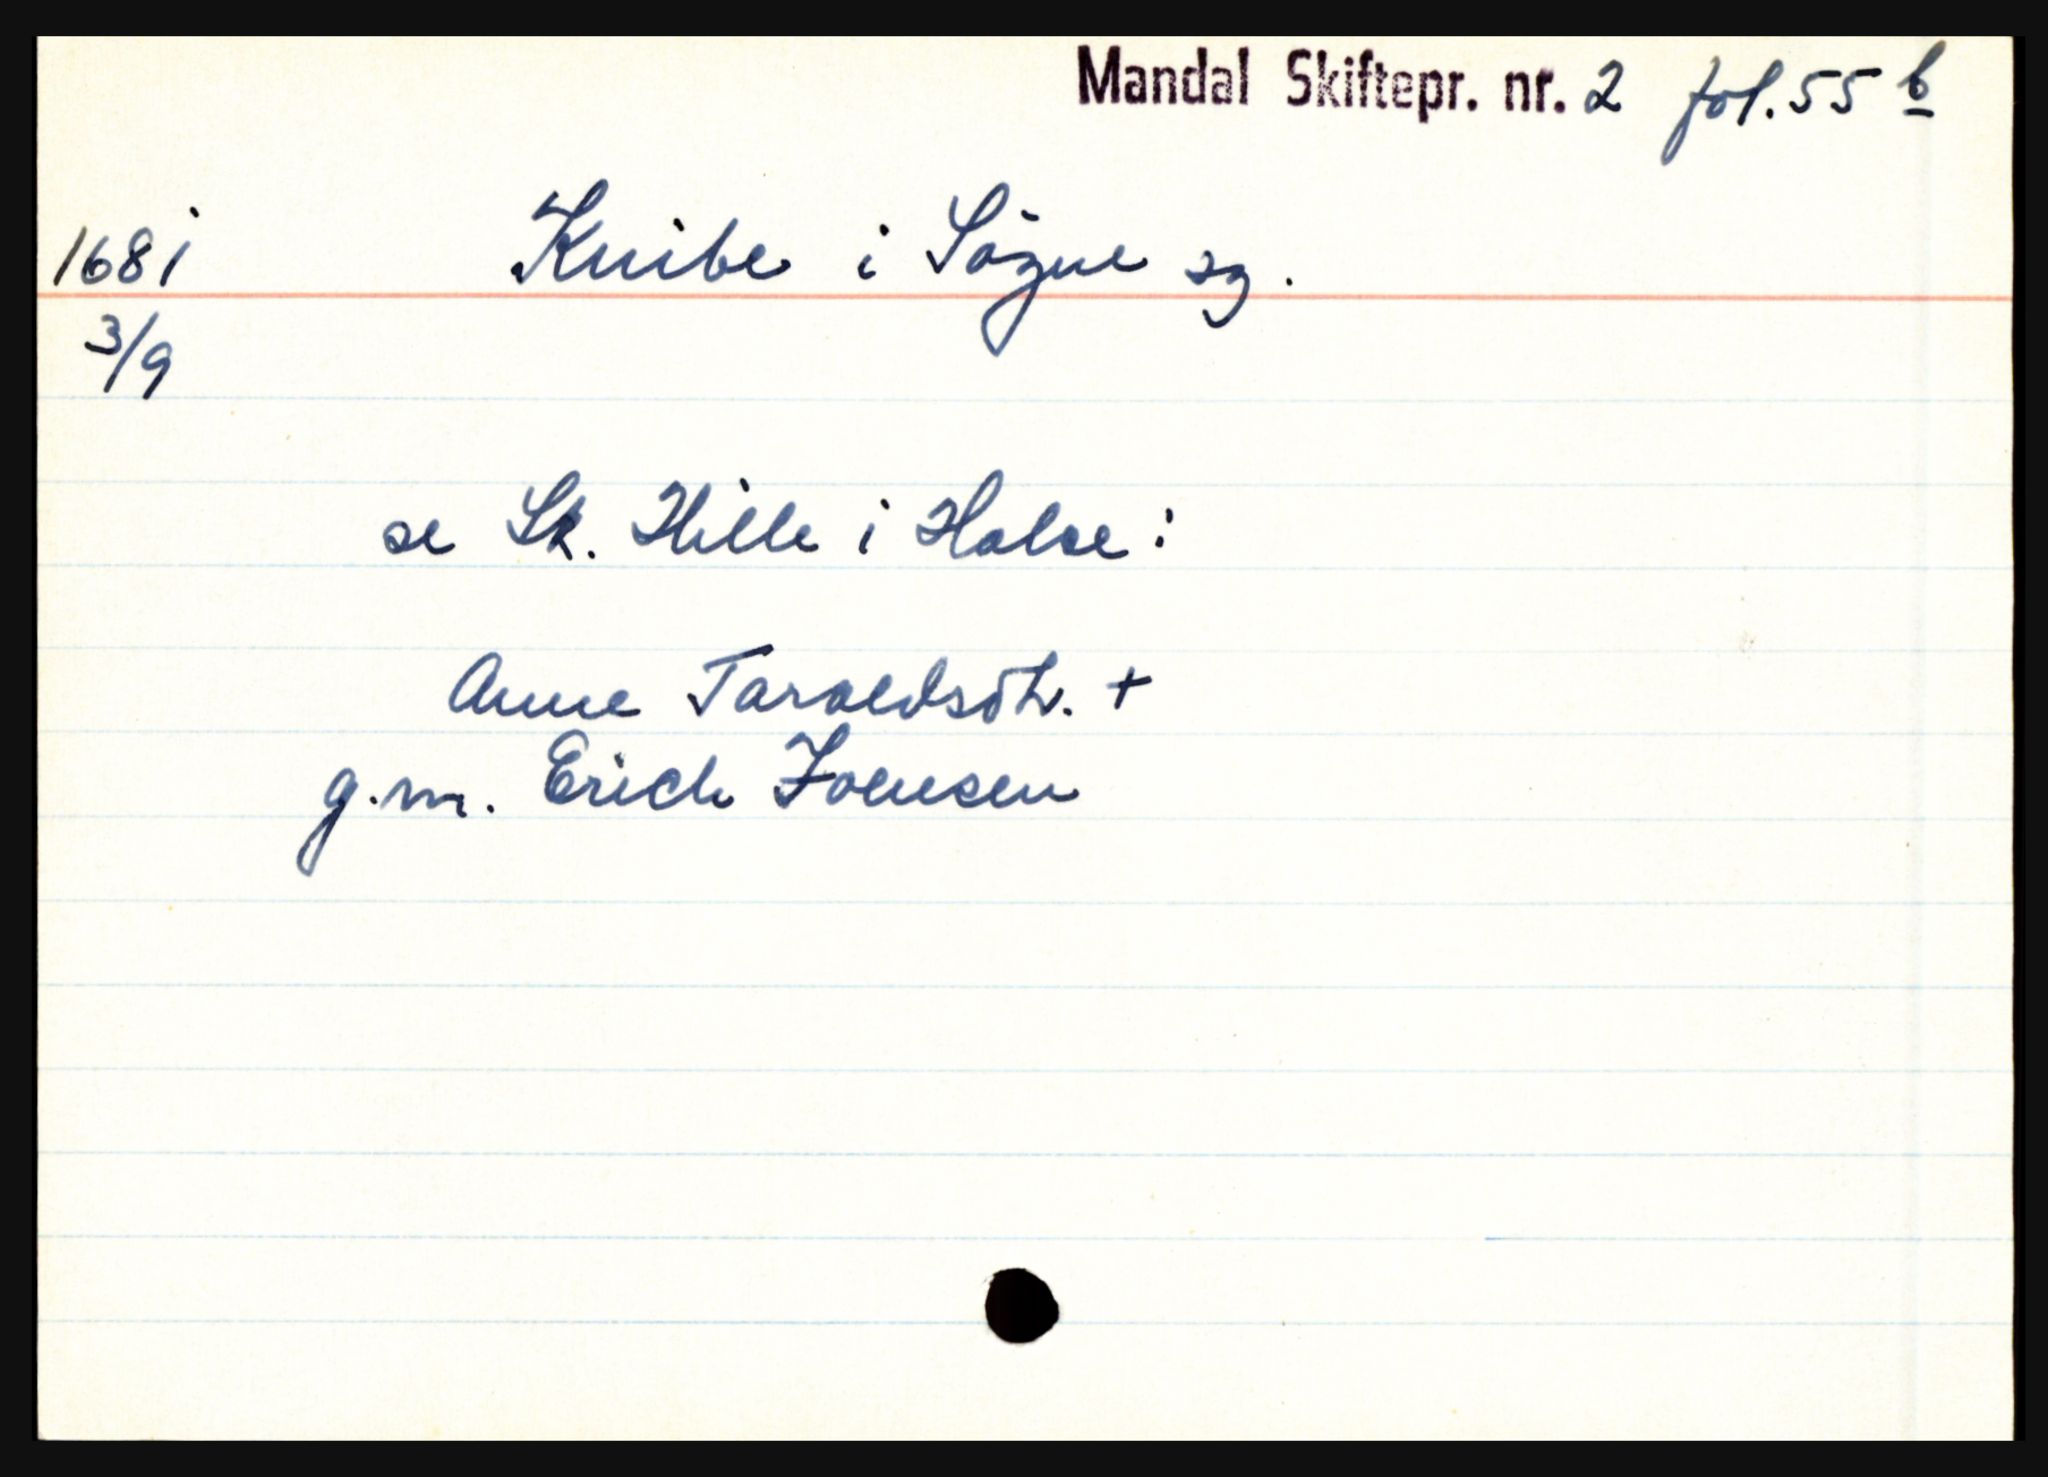 Mandal Skiftepr. nr. 2 fol. 55 b
1681 Knibe i Søgne sg.
3/9
se Sk. Hille i Halse:
Anne Taraldsdtr. +
g.m. Erich Joensen